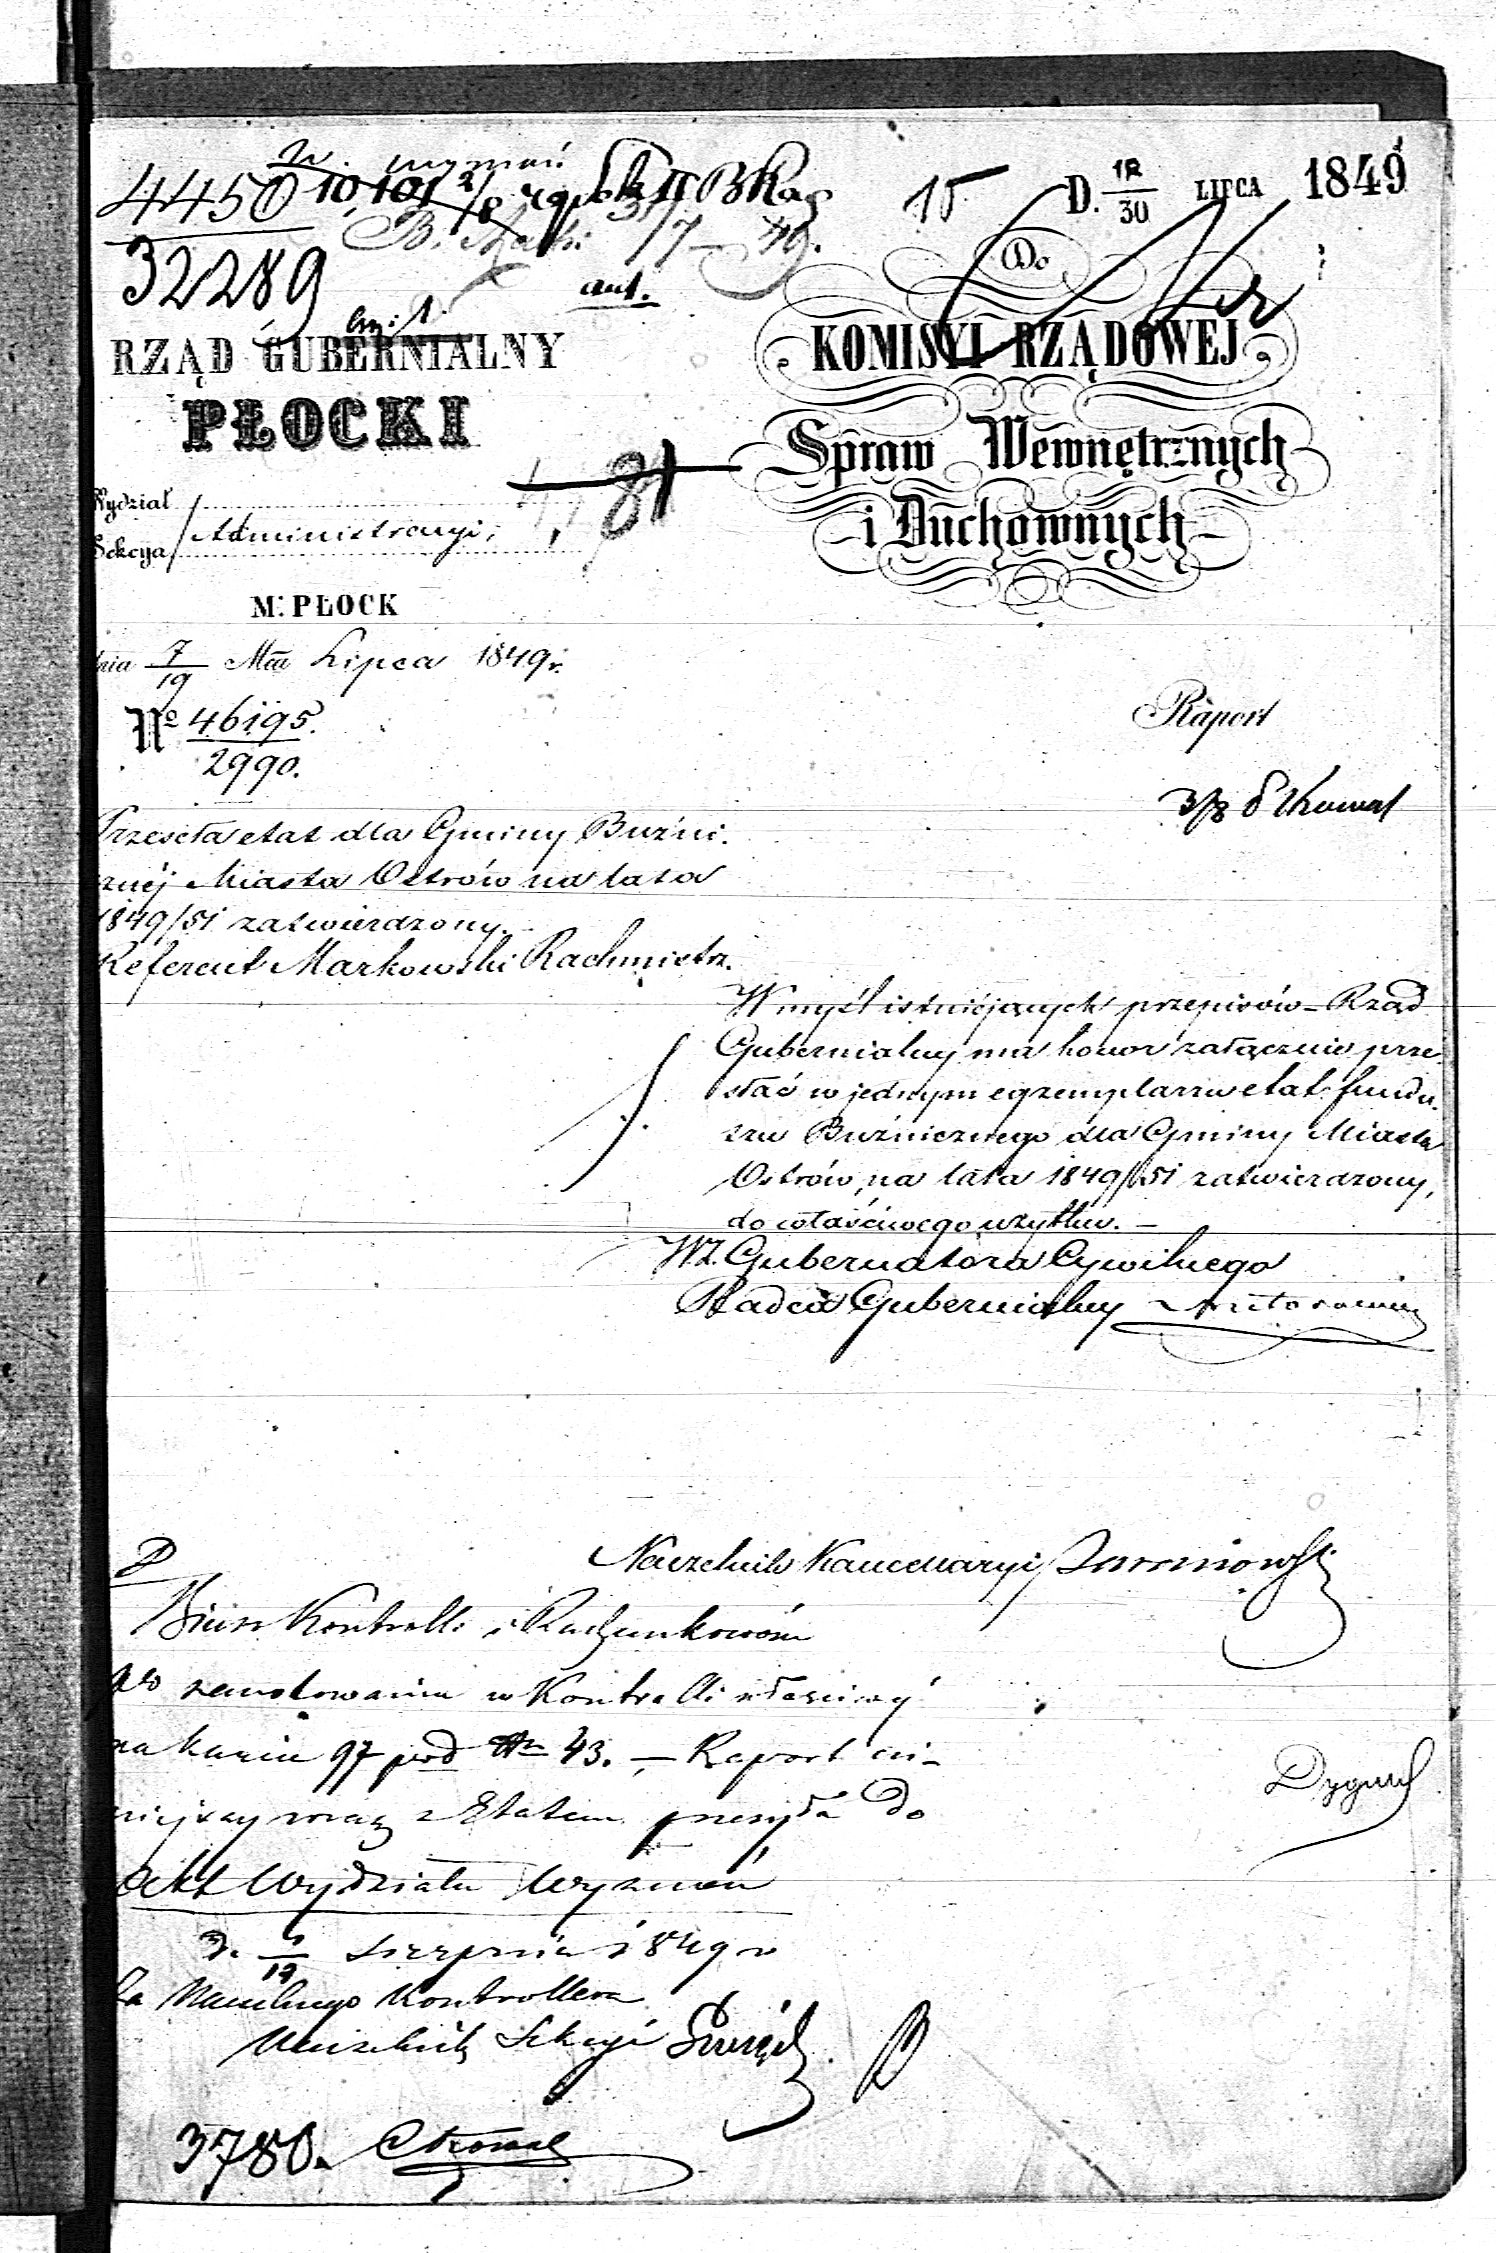 4450
32289
15
D. 18/30 LIPCA 1849
ant.
RZĄD GUBERNIALNY
PŁOCKI
Wydział
Sekcya Administracyi,
M. PŁOCK
dnia 7/19 Mca Lipca 1849 r.
No 46195.
2990.
Do
KOMISYI RZĄDOWEJ
Spraw Wewnętrznych
i Duchownych
81
Raport
Przeseła etat dla Gminy Buźni.
cznéj Miasta Ostrów na lata
1849/51 zatwierdzony.
Referent Markowski Rachmistrz.
W myśl istniejących przepisów – Rząd
Gubernialny ma honor załącznie prze-
słać w jednym egzemplarzu etat fundu-
szu Buźnicznego dla Gminy Miasta
Ostrów, na lata 1849/51 zatwierdzony,
do właściwego użytku. –
WZ. Gubernatora Cywilnego
Radca Gubernialny
Naczelnik Kancellaryi
Biuro Kontrolli i Rachunkowości
po zanotowaniu w Kontrolli właściwéj
na karcie 97 pod Nr 43. – Raport ni-
niejszy wraz z Etatem przesyła do
akt Wydziału Wyznań
d. 1849 r
Za Naczelnego Kontrollera
Naczelnik Sekcyi
3780.